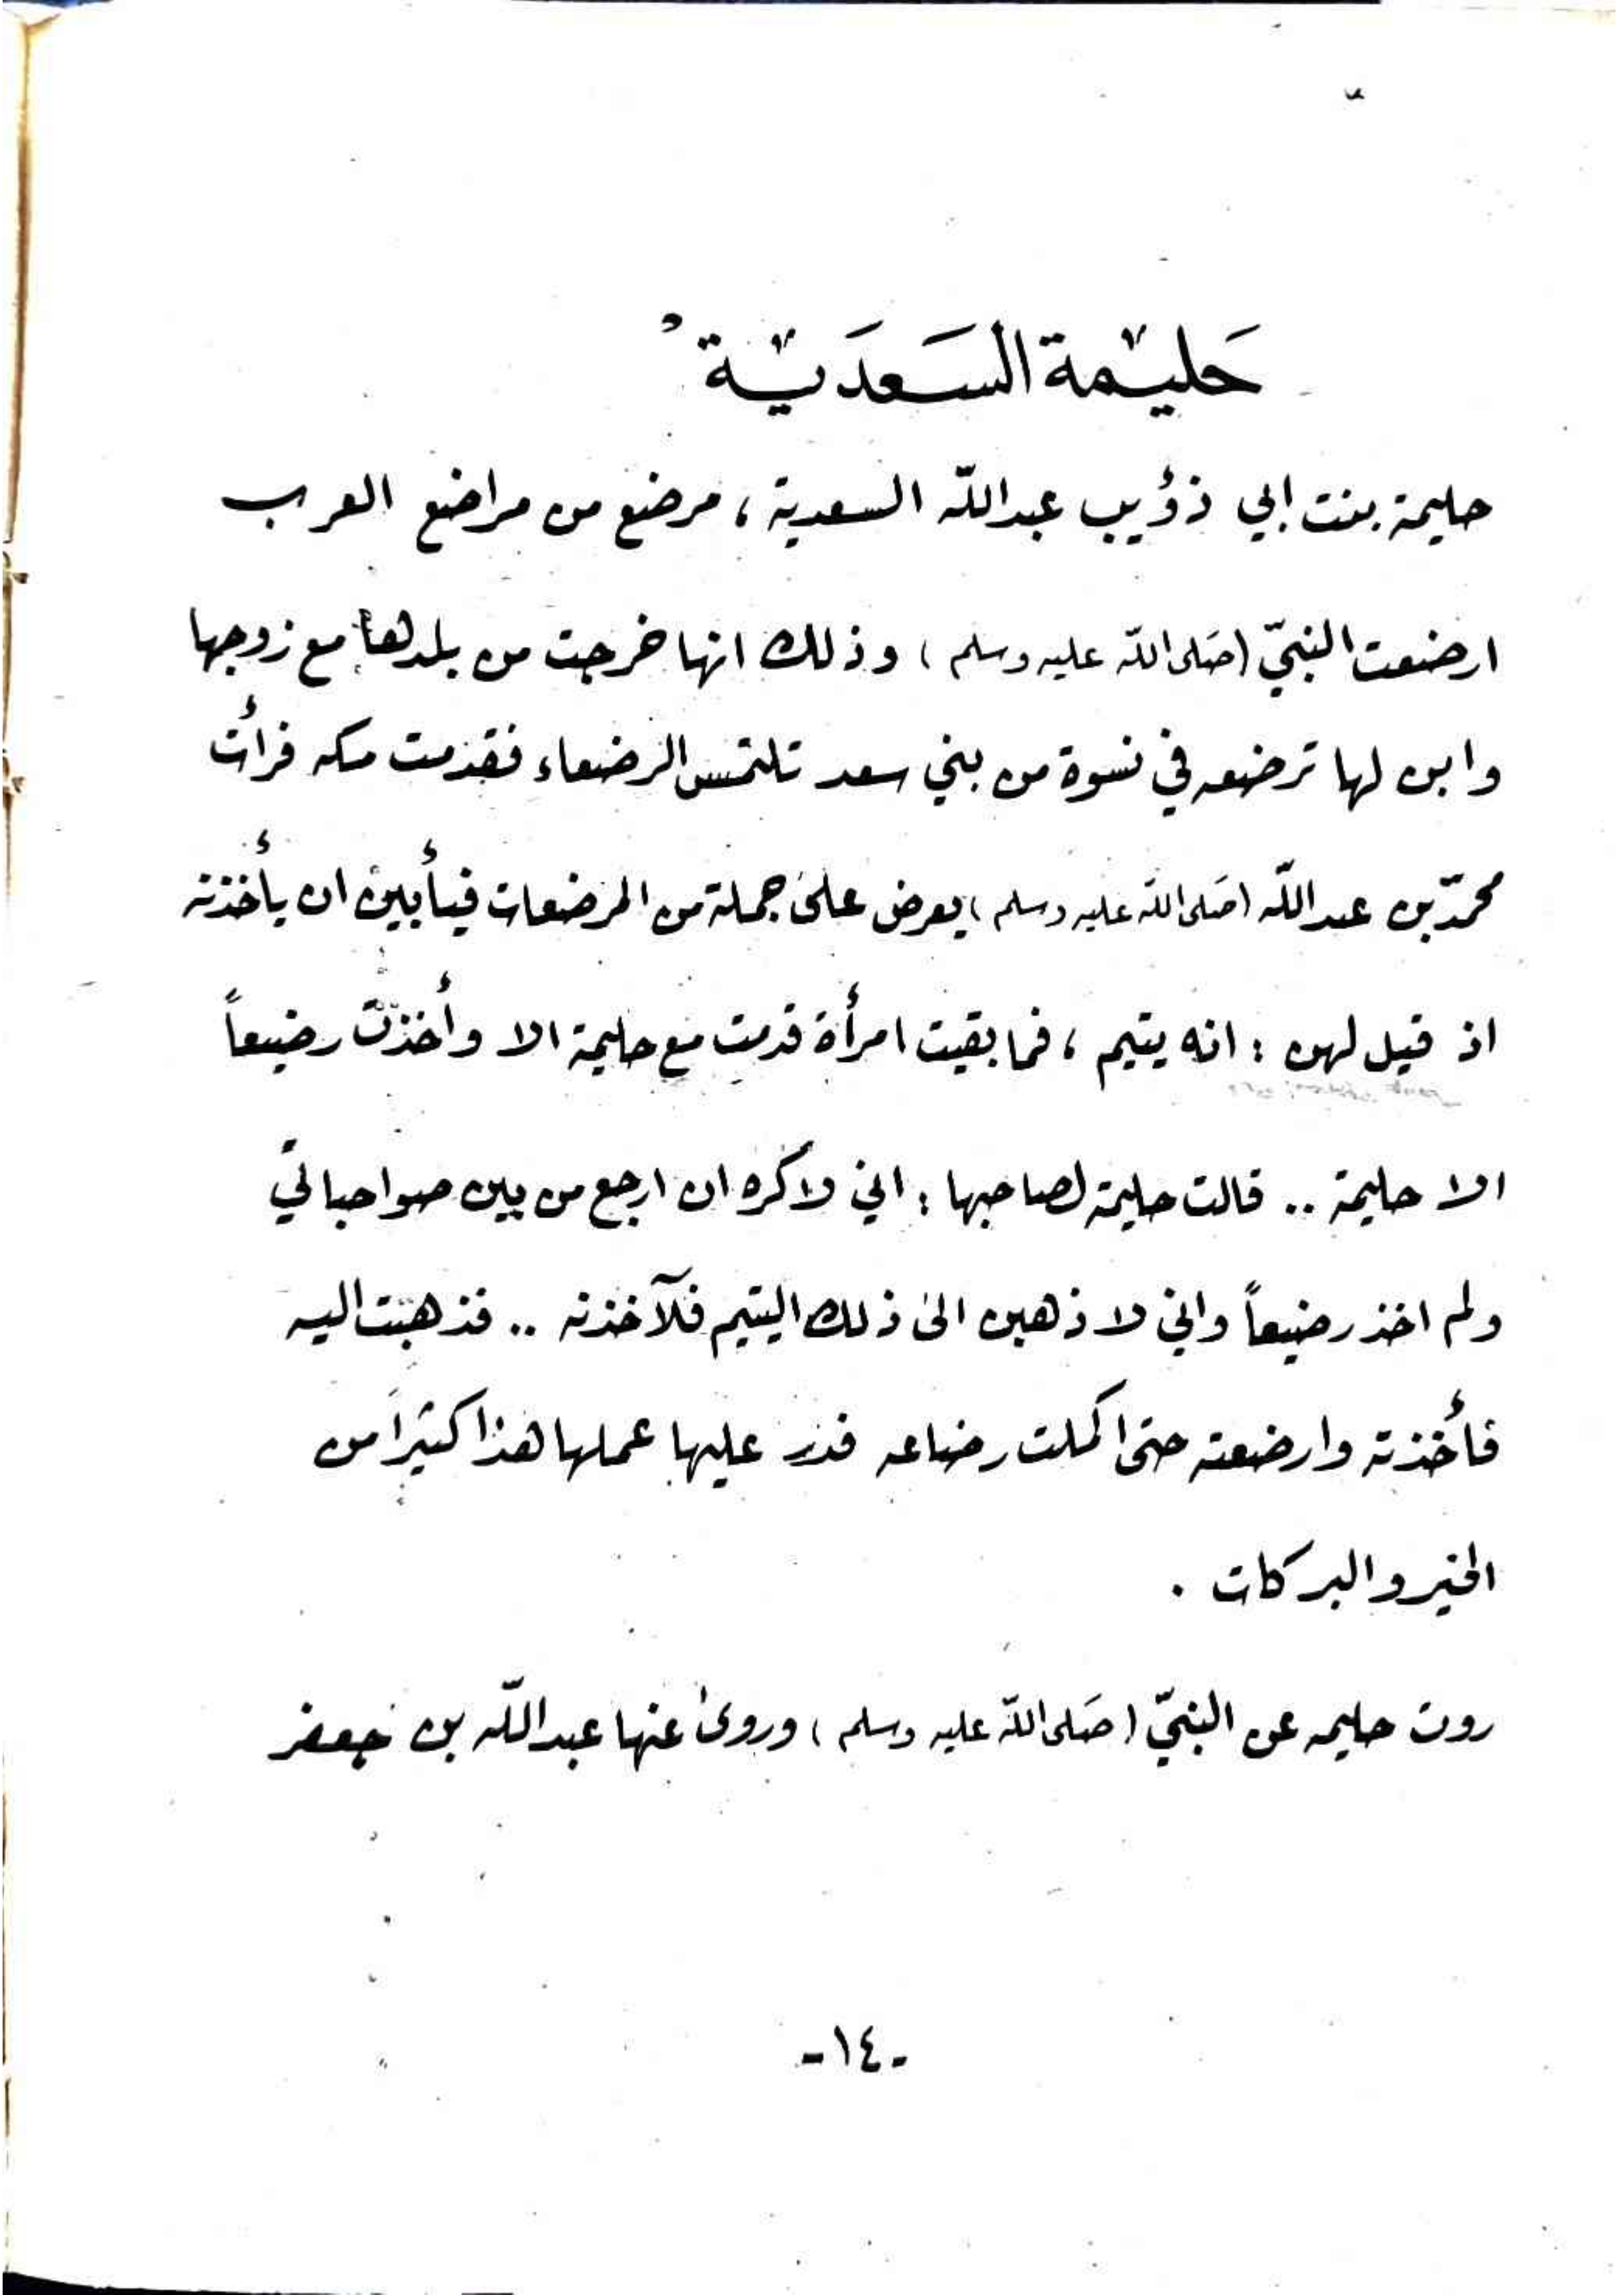 حليمة السعدية
حليمة بنت ابي ذؤيب عبدالله السعدية ، مرضع من مراضع العرب
ارضعت النبيّ (صلى الله عليه وسلم) وذلك انها خرجت من بلدها مع زوجها
وابن لها ترضعه في نسوة من بني سعد تلتمس الرضعاء فقدمت مكه فرأت
محمّد بن عبدالله (صلى الله عليه وسلم) يعرض على جملة من المرضعات فيأبين ان يأخذنه
اذ قيل لهن : انه يتيم ، فما بقيت امرأة قدمت مع حليمة الا وأخذت رضيعاً
الا حليمة .. قالت حليمة لصاحبها : اني لاكره ان ارجع من بين صواحباتي
ولم اخذ رضيعاً واني لاذهبن الى ذلك اليتيم فلآخذنه .. فذهبت اليه
فأخذته وارضعته حتى اكملت رضاعه فدر عليها عملها هذا كثيراً من
الخير والبركات .
روت حليمه عن النبيّ (صلى الله عليه وسلم) وروى عنها عبدالله بن جعفر
-١٤-